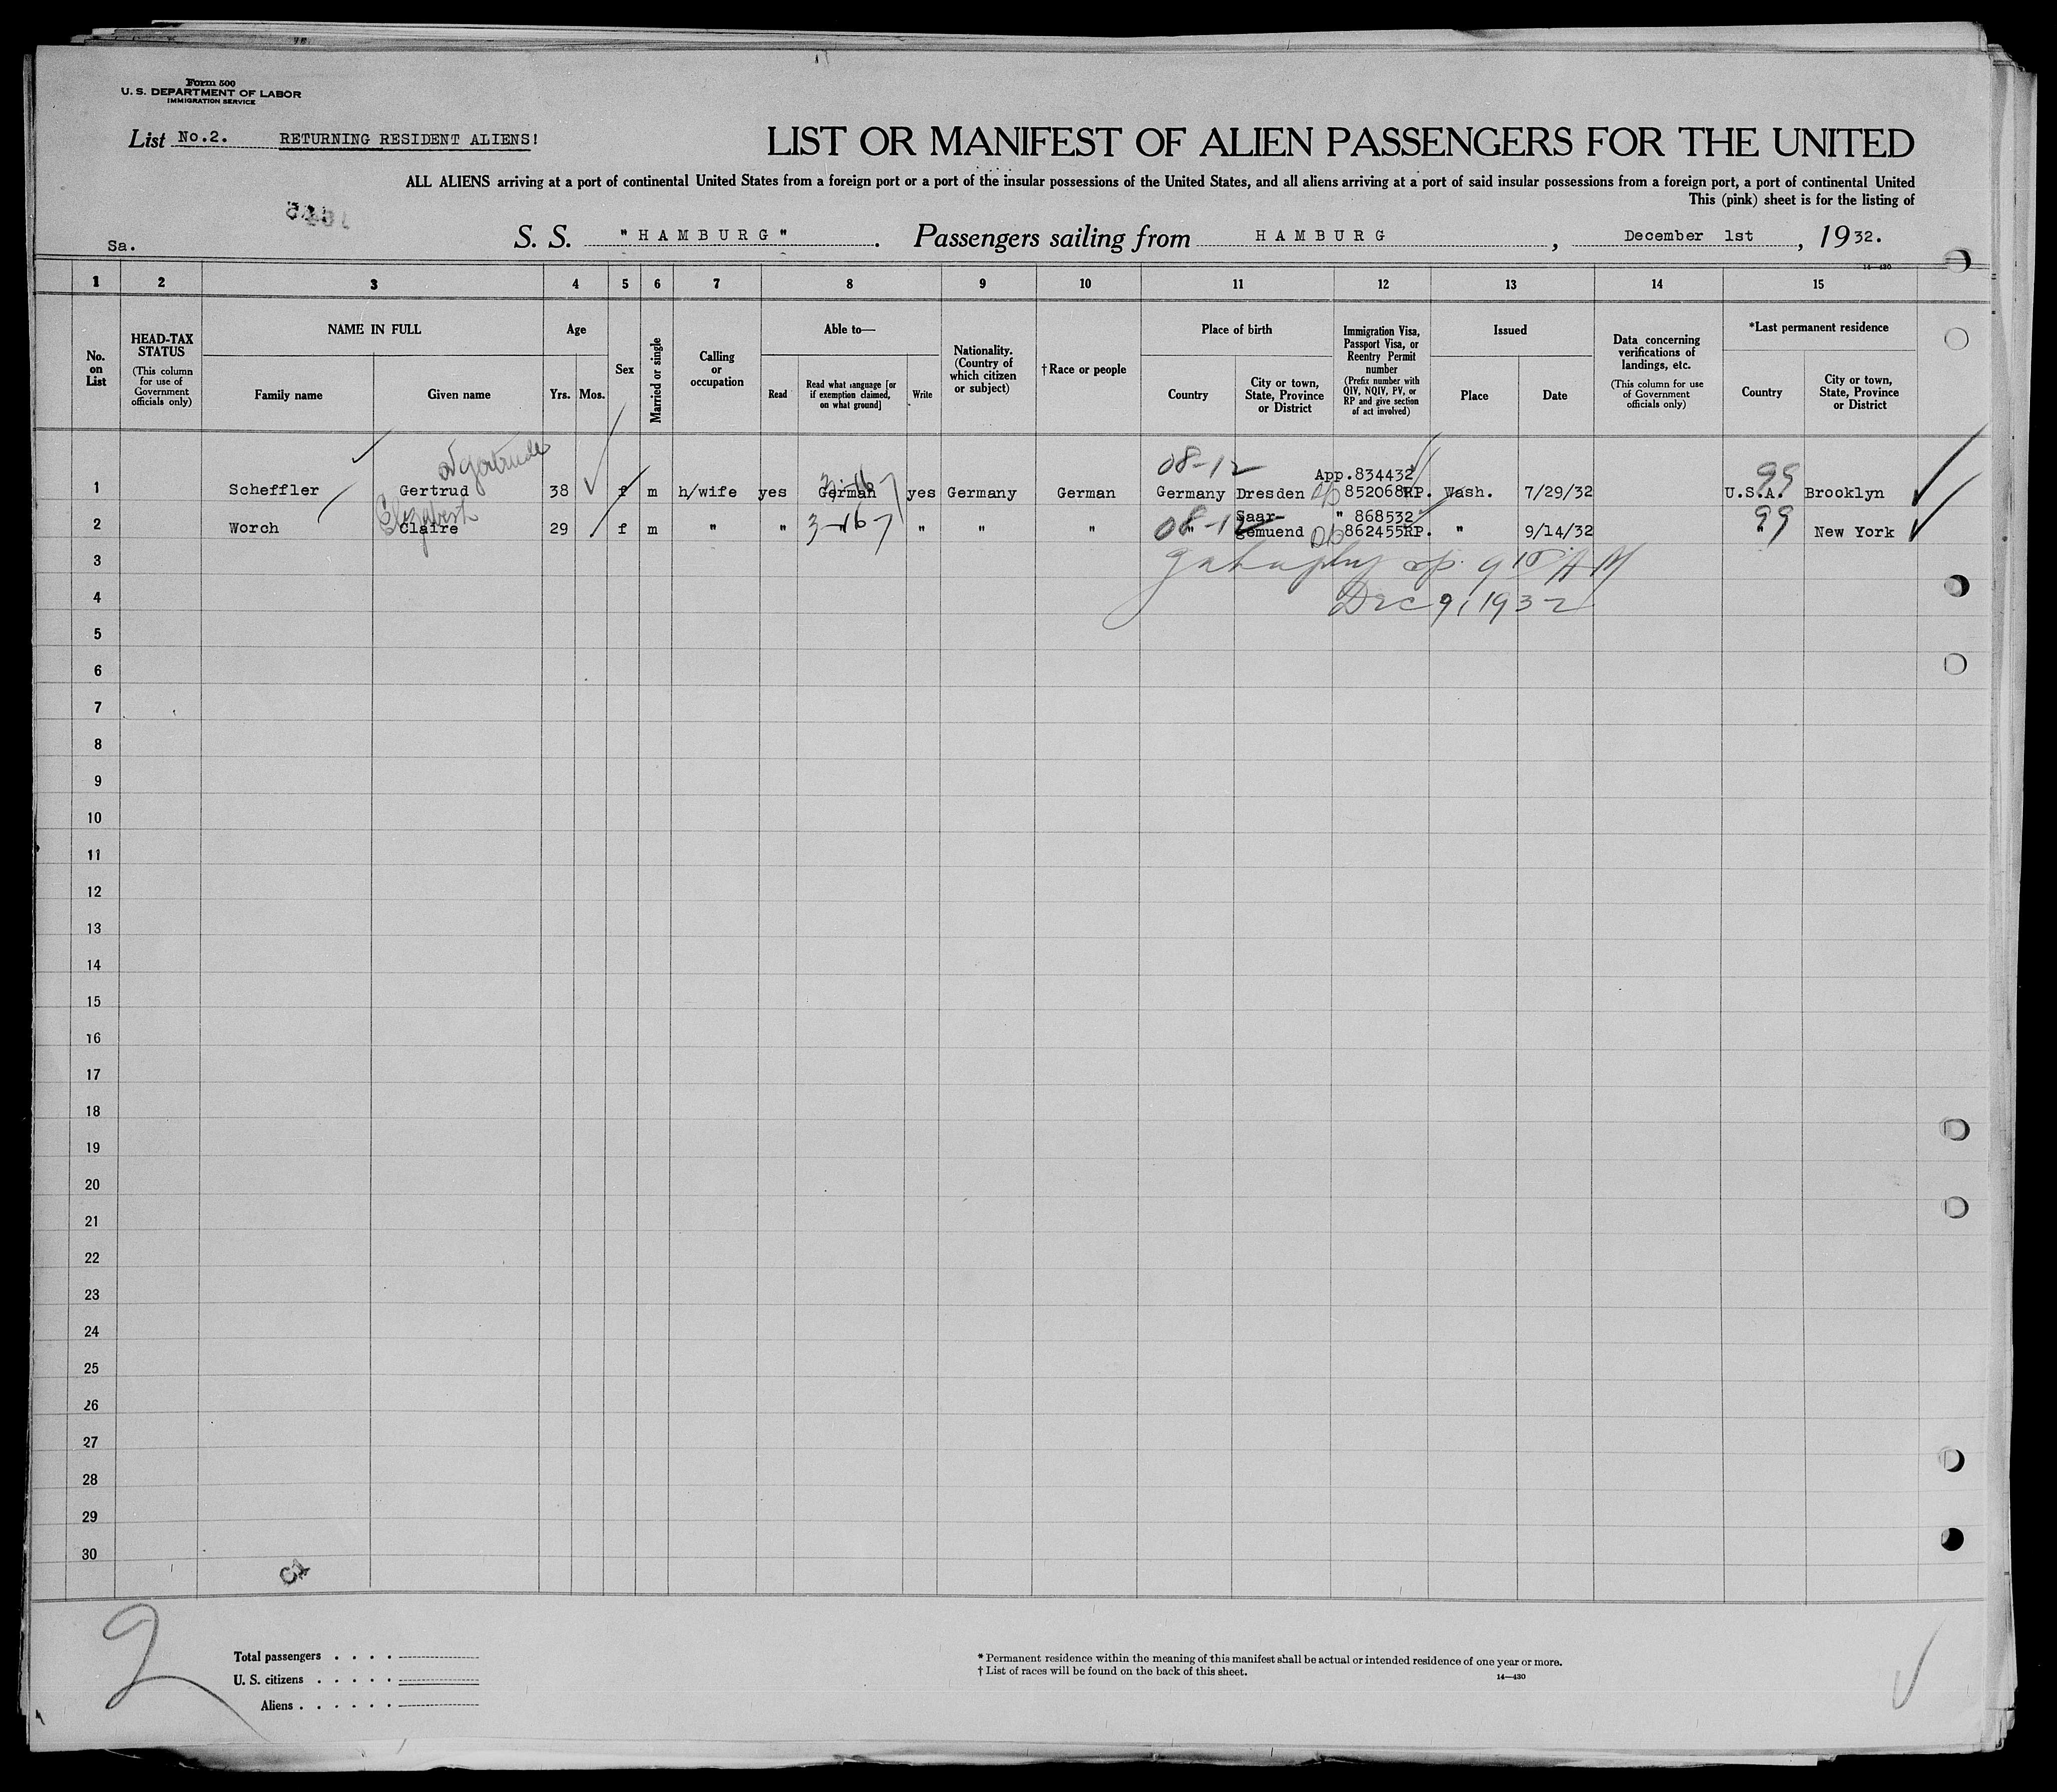 Form 500
U. S. DEPARTMENT OF LABOR
IMMIGRATION SERVICE
List No.2. RETURNING RESIDENT ALIENS!
LIST OR MANIFEST OF ALIEN PASSENGERS FOR THE UNITED
ALL ALIENS arriving at a port of continental United States from a foreign port or a port of the insular possessions of the United States, and all aliens arriving at a port of said insular possessions from a foreign port, a port of continental United
This (pink) sheet is for the listing of
Sa.
S. S. "HAMBURG". Passengers sailing from HAMBURG, December 1st, 1932.
14—430
1 2 3 4 5 6 7 8 9 10 11 12 13 14 15
No. on List
HEAD-TAX STATUS (This column for use of Government officials only)
NAME IN FULL
Family name
Given name
Age
Yrs. Mos.
Sex
Married or single
Calling or occupation
Able to—
Read
Read what language [or if exemption claimed, on what ground]
Write
Nationality. (Country of which citizen or subject)
† Race or people
Place of birth
Country
City or town, State, Province or District
Immigration Visa, Passport Visa, or Reentry Permit number (Prefix number with QIV, NQIV, PV, or RP and give section of act involved)
Issued
Place
Date
Data concerning verifications of landings, etc. (This column for use of Government officials only)
*Last permanent residence
Country
City or town, State, Province or District
or Gertrude
08-12
App.834432
99
1 Scheffler Gertrud 38 f m h/wife yes German yes Germany German Germany Dresden 852068RP. Wash. 7/29/32 U.S.A. Brooklyn
3-16-7
Elizabeth
Saar-
" 868532
99
2 Worch Claire 29 f m " " " " " " " gemuend 862455RP. " 9/14/32 " New York
3-16-7
08-12
3
9 15 AM
4
Dec 9, 1932
5
6
7
8
9
10
11
12
13
14
15
16
17
18
19
20
21
22
23
24
25
26
27
28
29
30
2
Total passengers
U. S. citizens
Aliens
* Permanent residence within the meaning of this manifest shall be actual or intended residence of one year or more.
† List of races will be found on the back of this sheet.
14—430